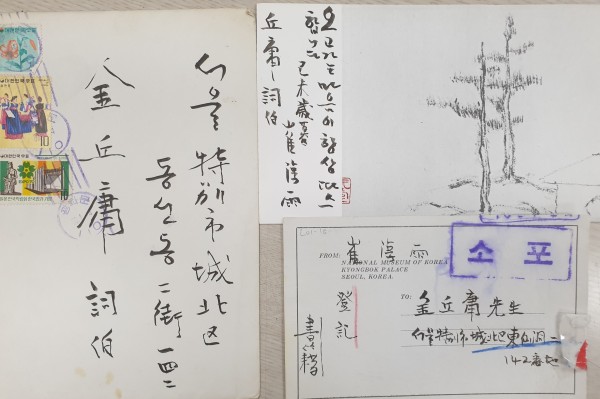 서울特別市城北区
동선동二街一四二
金丘庸 詞伯
10
10
오고가는 마음이 항상 따스
합니다 己未歲暮
崔淳雨
丘庸 詞伯
소포
FROM: 崔淳雨
NATIONAL MUSEUM OF KOREA
KYONGBOK PALACE
SEOUL, KOREA.
登記
書籍
TO: 金丘庸先生
서울特別市城北区東仙洞二
142番地